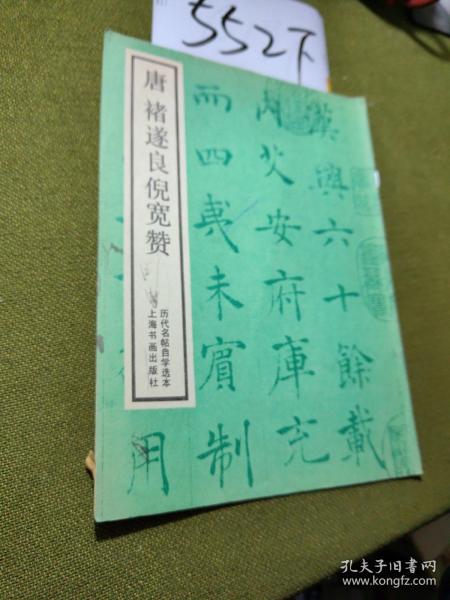 552下
唐 褚遂良倪宽赞
历代名帖自学选本
上海书画出版社
漢興六十餘載
内乂安府庫充
而四夷未賓制
用
孔夫子旧书网
www.kongfz.com